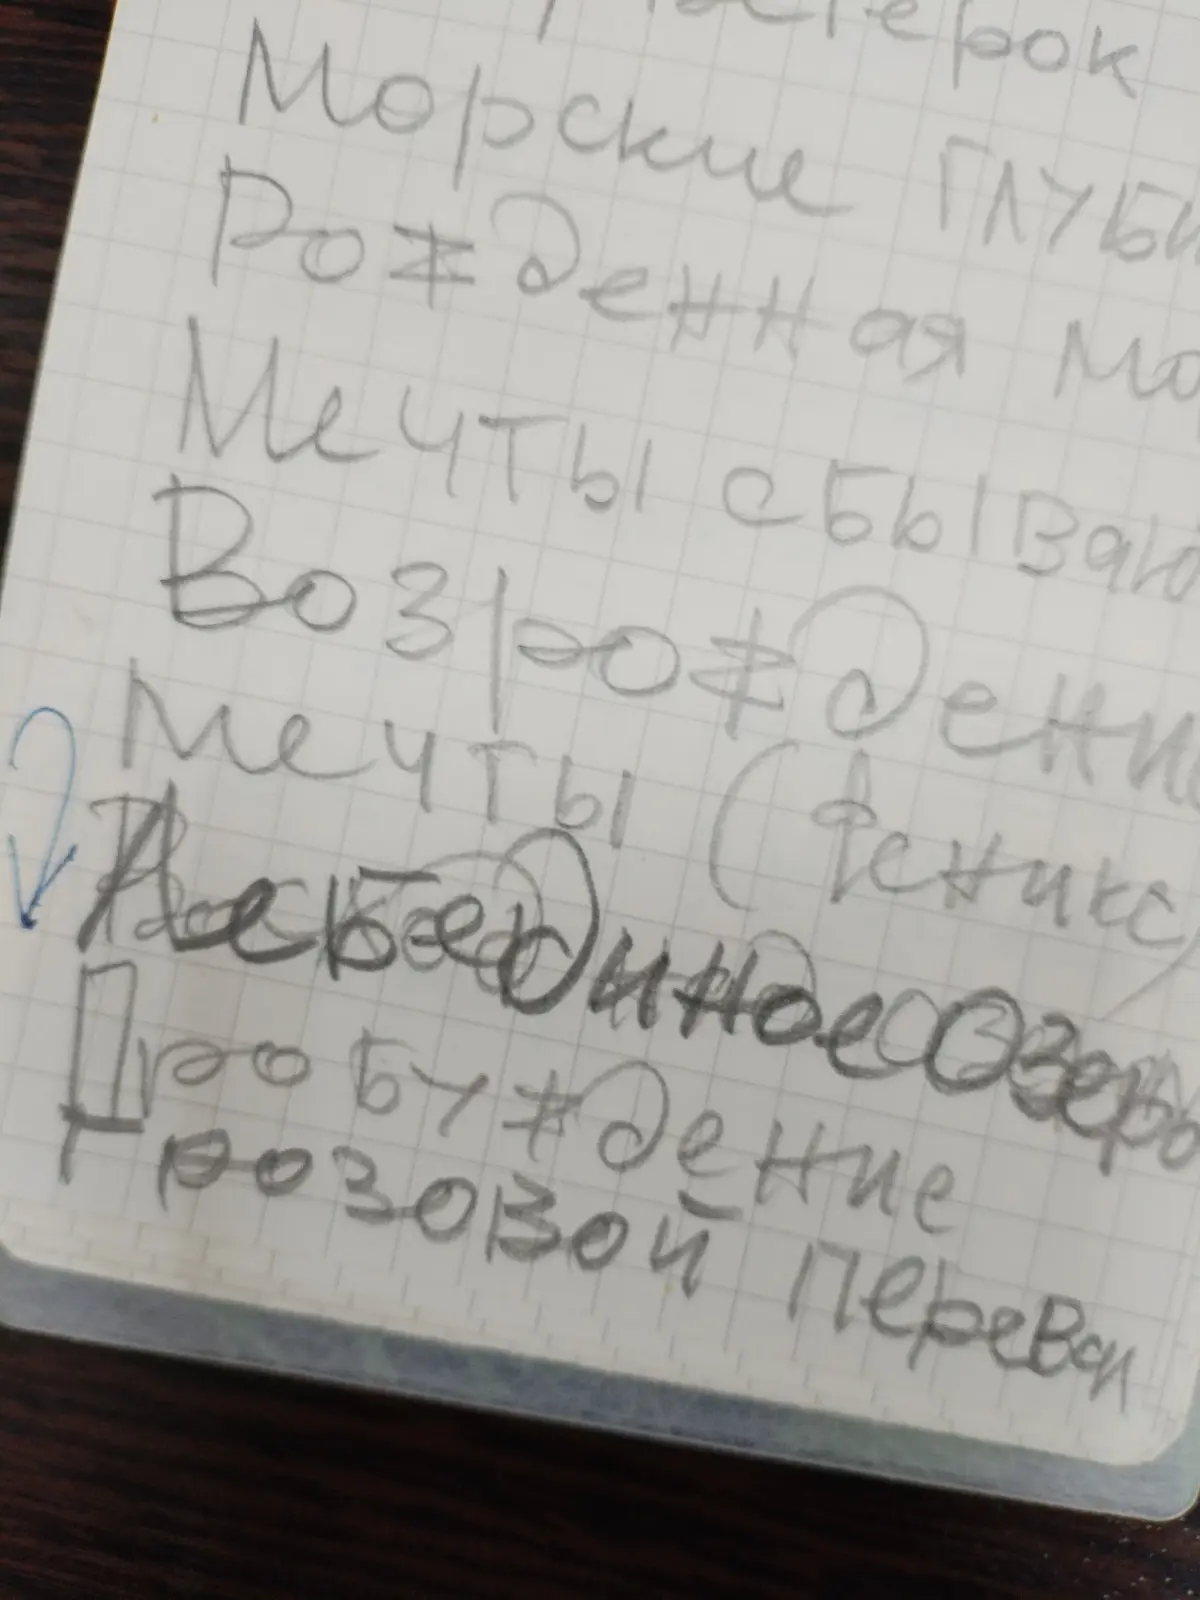 Морские глуби
Рожденная мо
Мечты сбываю
Возрождени
Мечты (Феникс)
Лебединое озеро
Пробуждение
Грозовой перевал